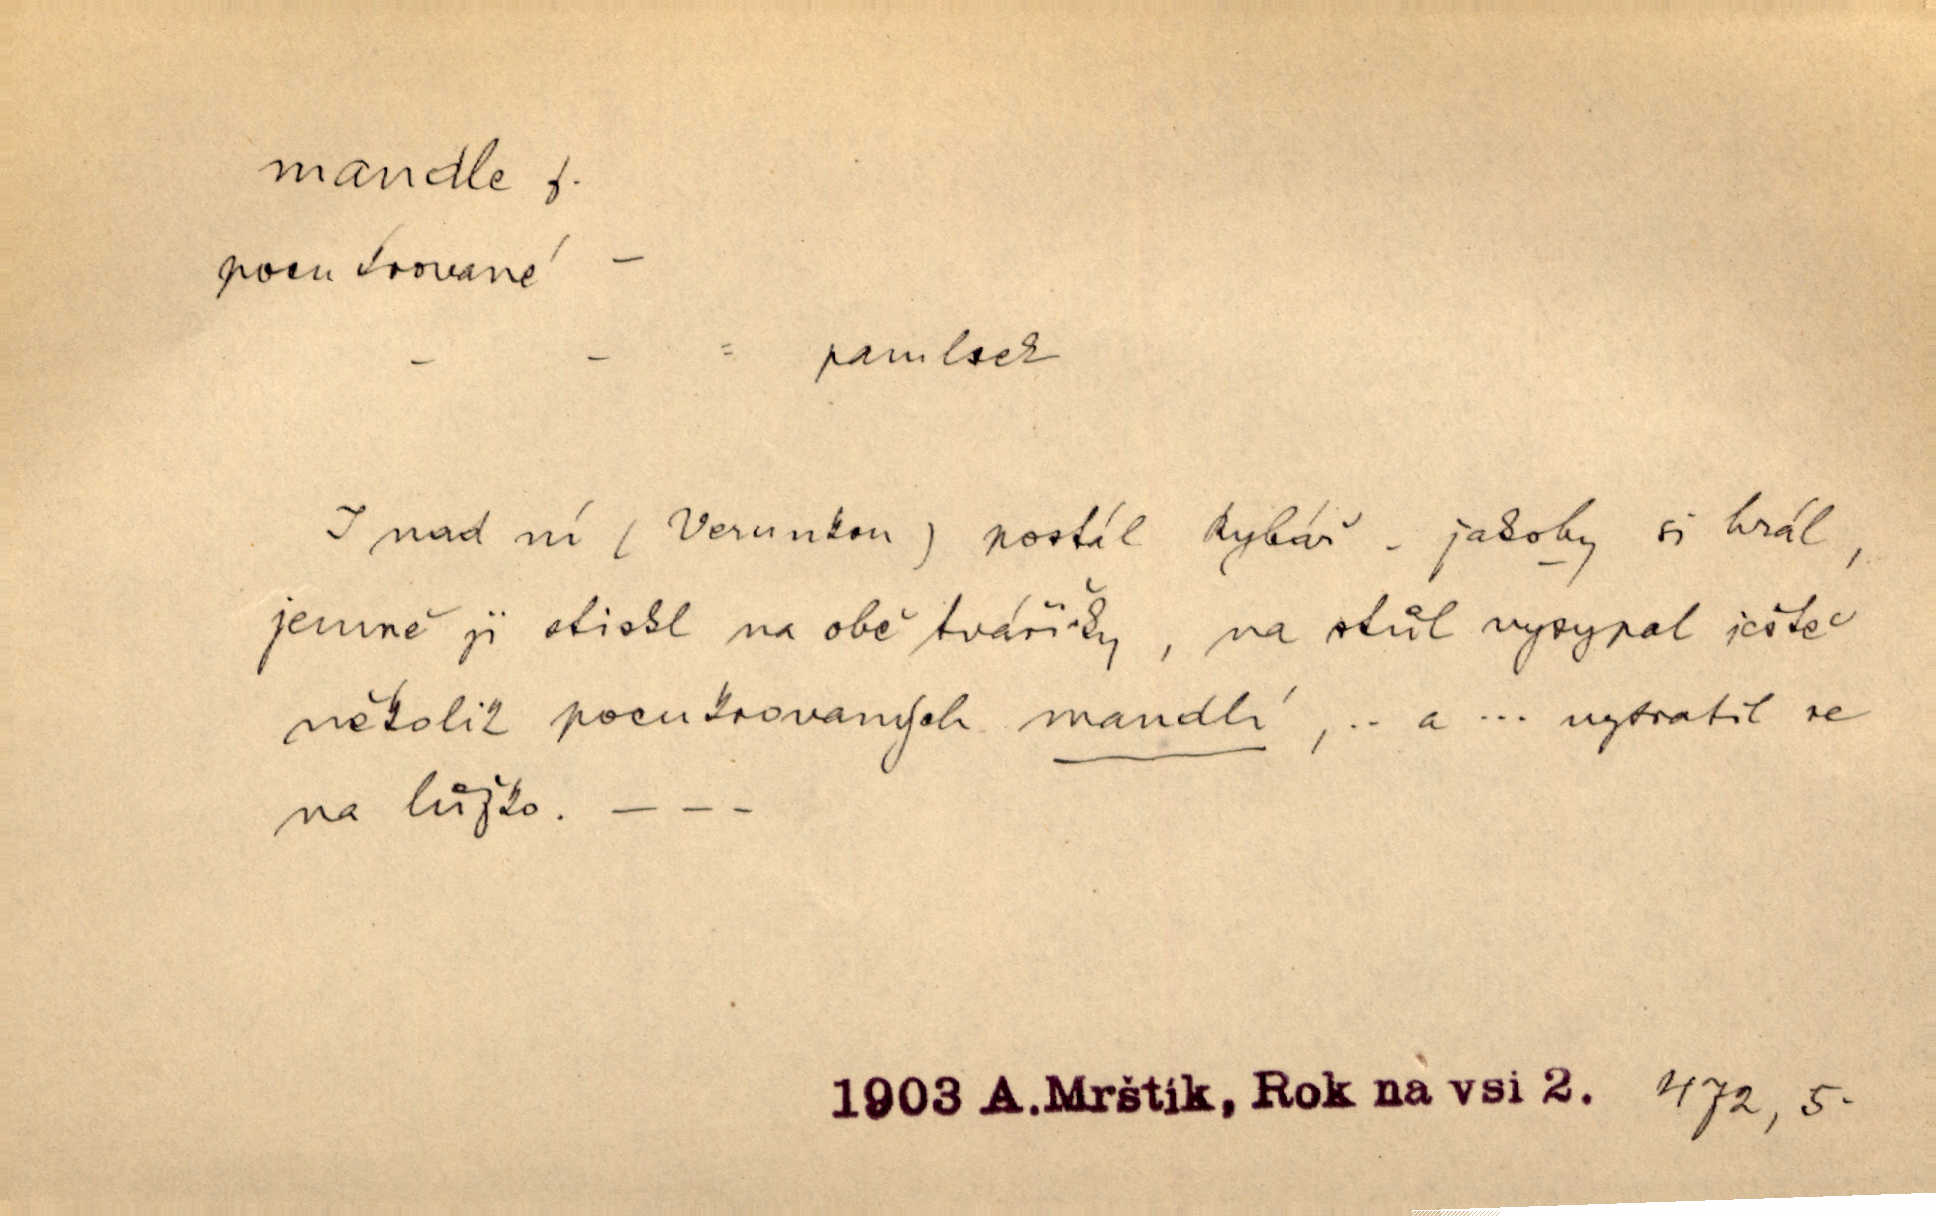 mandle f.
pocukrované –
– – = pamlsek
I nad ní (Verunkou) postál Rybář – jakoby si hrál,
jemně jí stiskl na obě tvářičky, na stůl vysypal ještě
několik pocukrovaných mandlí, .. a ... vytratil se
na lůžko. – – –
1903 A.Mrštík, Rok na vsi 2. 472, 5.